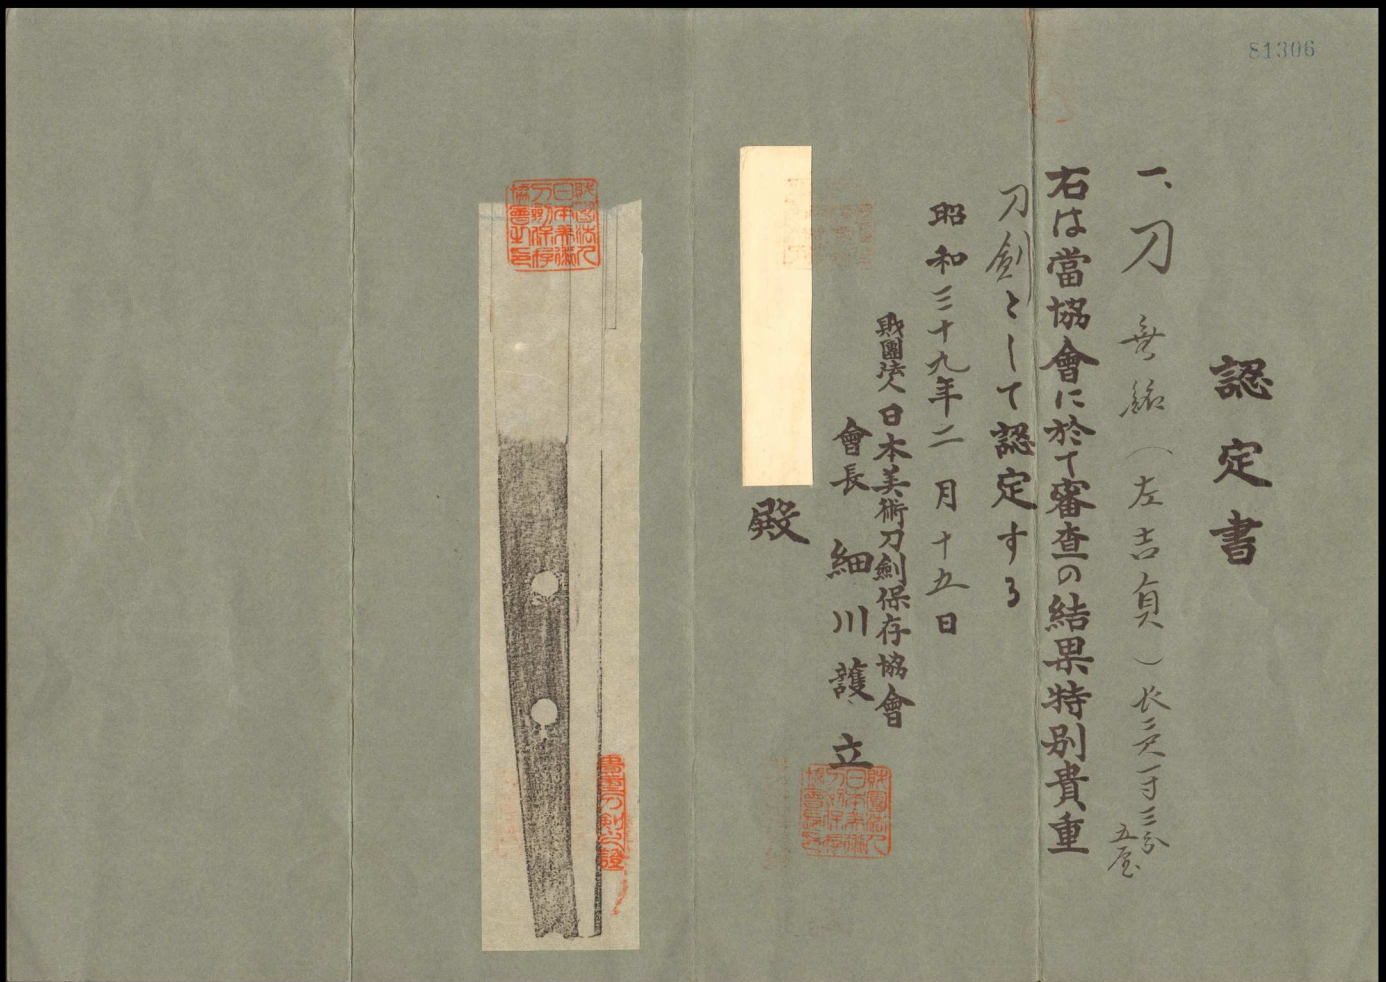 81306
認定書
一、刀 無銘（左吉貞）长二尺一寸三分
五厘
右は當協會に於て審査の結果特別貴重
刀劍として認定する
昭和三十九年二月十五日
財團法人日本美術刀劍保存協會
會長 細川護立
殿
財団法人
日本美術
刀劍保存
協會之印
貴重刀剣之證